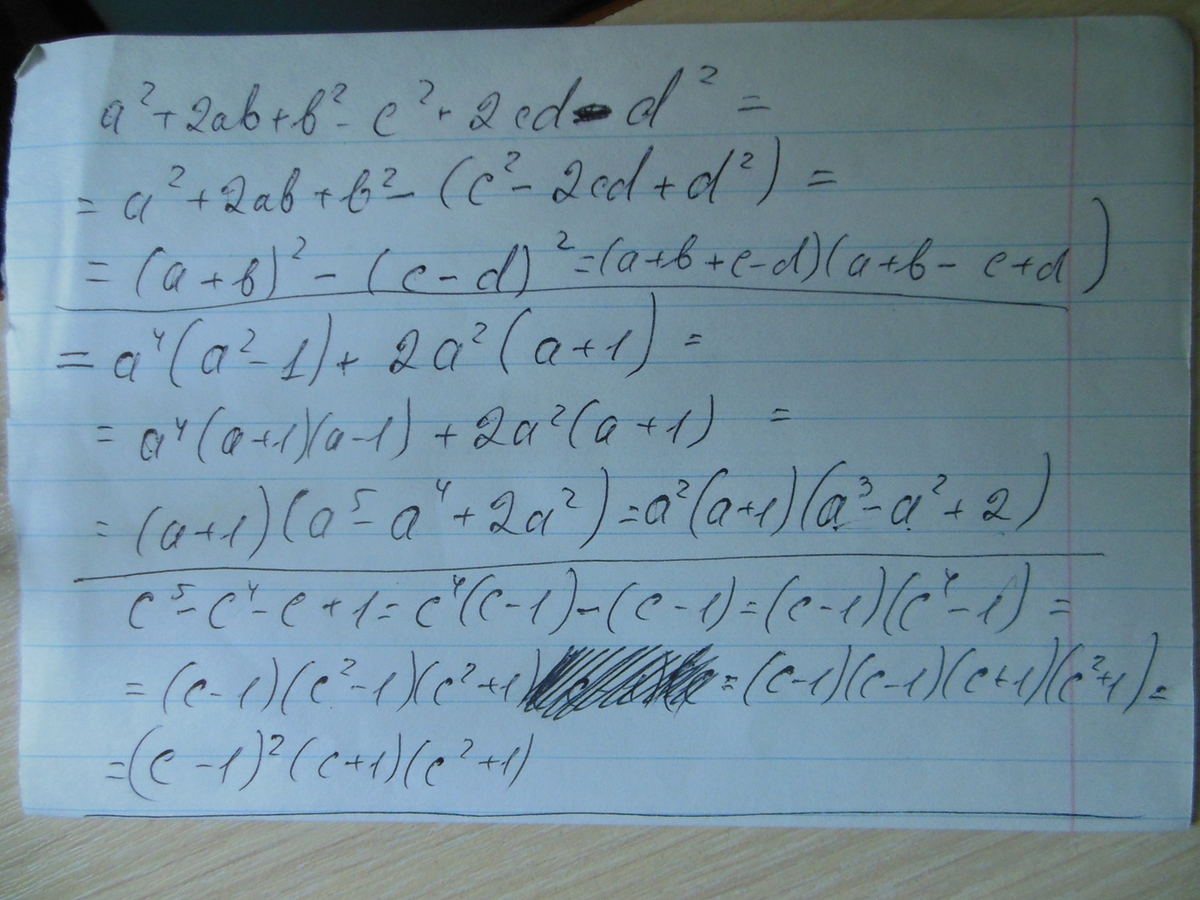 a² + 2ab + b² - c² + 2cd - d² =
= a² + 2ab + b² - (c² - 2cd + d²) =
= (a + b)² - (c - d)² = (a + b + c - d)(a + b - c + d)
= a⁴(a² - 1) + 2a²(a + 1) =
= a⁴(a + 1)(a - 1) + 2a²(a + 1) =
= (a + 1)(a⁵ - a⁴ + 2a²) = a²(a + 1)(a³ - a² + 2)
c⁵ - c⁴ - c + 1 = c⁴(c - 1) - (c - 1) = (c - 1)(c⁴ - 1) =
= (c - 1)(c² - 1)(c² + 1) = (c - 1)(c - 1)(c + 1)(c² + 1) =
= (c - 1)²(c + 1)(c² + 1)